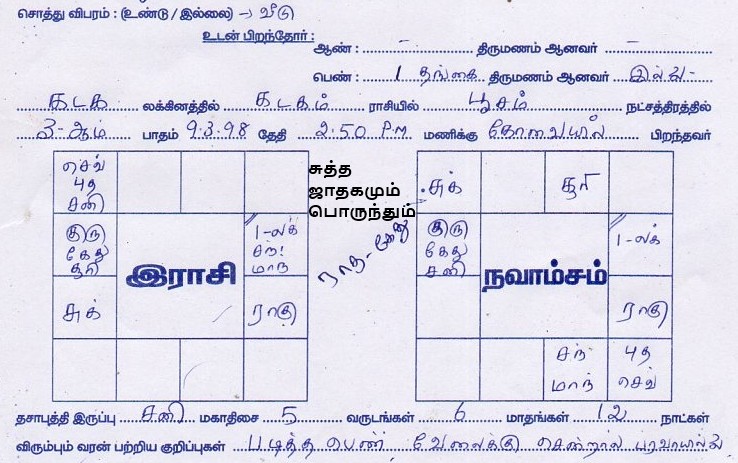 சொத்து விபரம் : (உண்டு / இல்லை) → வீடு
உடன் பிறந்தோர் :
ஆண் : – திருமணம் ஆனவர் –
பெண் : 1 தங்கை திருமணம் ஆனவர் இல்லை
கடக லக்கினத்தில் கடகம் ராசியில் பூசம் நட்சத்திரத்தில்
3-ஆம் பாதம் 9.3.98 தேதி 2.50 P.M மணிக்கு கோவையில் பிறந்தவர்
செவ்
புத
சனி
குரு
கேது
சூரி
சுக்
1-லக்
சந்
மாந்
ராகு
இராசி
சுத்த
ஜாதகமும்
பொருந்தும்
சுக்
சூரி
குரு
கேது
சனி
1-லக்
ராகு
சந்
மாந்
புத
செவ்
நவாம்சம்
தசாபுத்தி இருப்பு சனி மகாதிசை 5 வருடங்கள் 6 மாதங்கள் 12 நாட்கள்
விரும்பும் வரன் பற்றிய குறிப்புகள் படித்த பெண் வேலைக்கு சென்றால் பரவாயில்லை